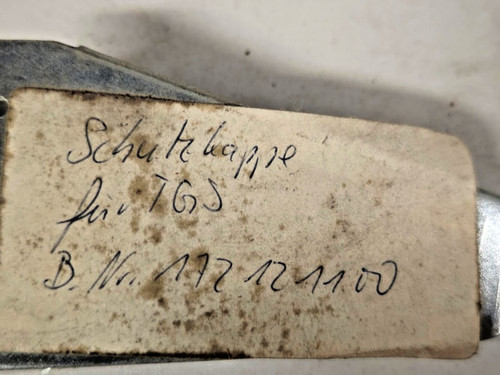 Schutzkappe
für TGS
B. Nr. 172 121 100